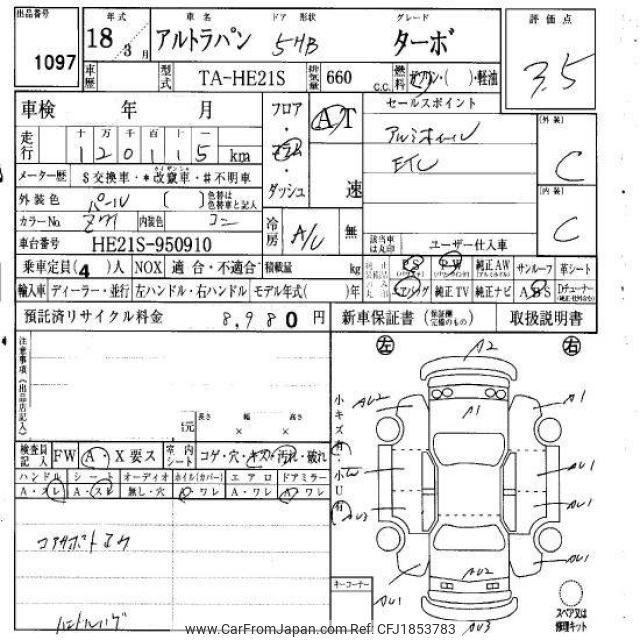 出品番号 1097
年式 18年 3月
車名 アルトラパン
ドア 形状 5HB
グレード ターボ
評価点 3.5
車歴
型式 TA-HE21S
排気量 660 C.C.
燃料 ガソリン・( )・軽油
車検 年 月
フロア・コラム・ダッシュ
AT
速
セールスポイント
アルミホイール
ETC
(外装) C
(内装) C
走行 十 万 千 百 十 一
1 2 0 1 1 5 km
メーター歴 $交換車・*改竄車・#不明車
外装色 パール ( ) 色替は色替車と記入
カラーNo. Z7T 内装色
冷房 A/C 無
該当車は丸印 ユーザー仕入車
車台番号 HE21S-950910
乗車定員(4)人 NOX 適合・不適合 積載量 kg
PS PW 純正AW サンルーフ 革シート
輸入車 ディーラー・並行 左ハンドル・右ハンドル モデル年式( )年
エアバッグ 純正TV 純正ナビ ABS Dチューナー
預託済リサイクル料金 8,980 円
新車保証書 (保証欄記載のもの) 取扱説明書
注意事項(出品店記入)
左 A2 右
AU2 A1 A1
長さ 幅 高さ
× ×
小キズ有
小U有
検査員記入 FW A・X要ス 室内シート コゲ・穴・キズ・汚れ・破れ
ハンドル シート オーディオ ホイル(カバー) エアロ ドアミラー
A・スレ A・スレ 無し・穴 A・ワレ A・ワレ A・ワレ
AU1
AU1
AU3
コアサポートサビ
AU1 AU2 AU1
キーコーナー
AU3
スペア又は修理キット
www.CarFromJapan.com Ref: CFJ1853783